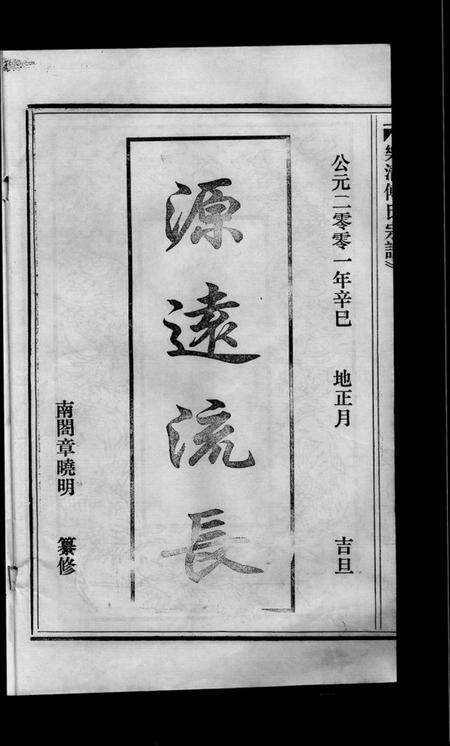 氏宗譜》
公元二零零一年辛巳 地正月 吉旦
源遠流長
南閤章曉明 纂修